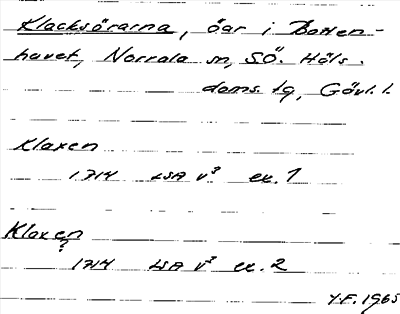 Klacksörarna, öar i Botten-
havet, Norrala sn, SÖ. Häls.
doms. lg, Gävl. l.
Klaxen
1714 LSA V³ ex. 1
Klaxen
?
1714 LSA V³ ex. 2
Y.F. 1965